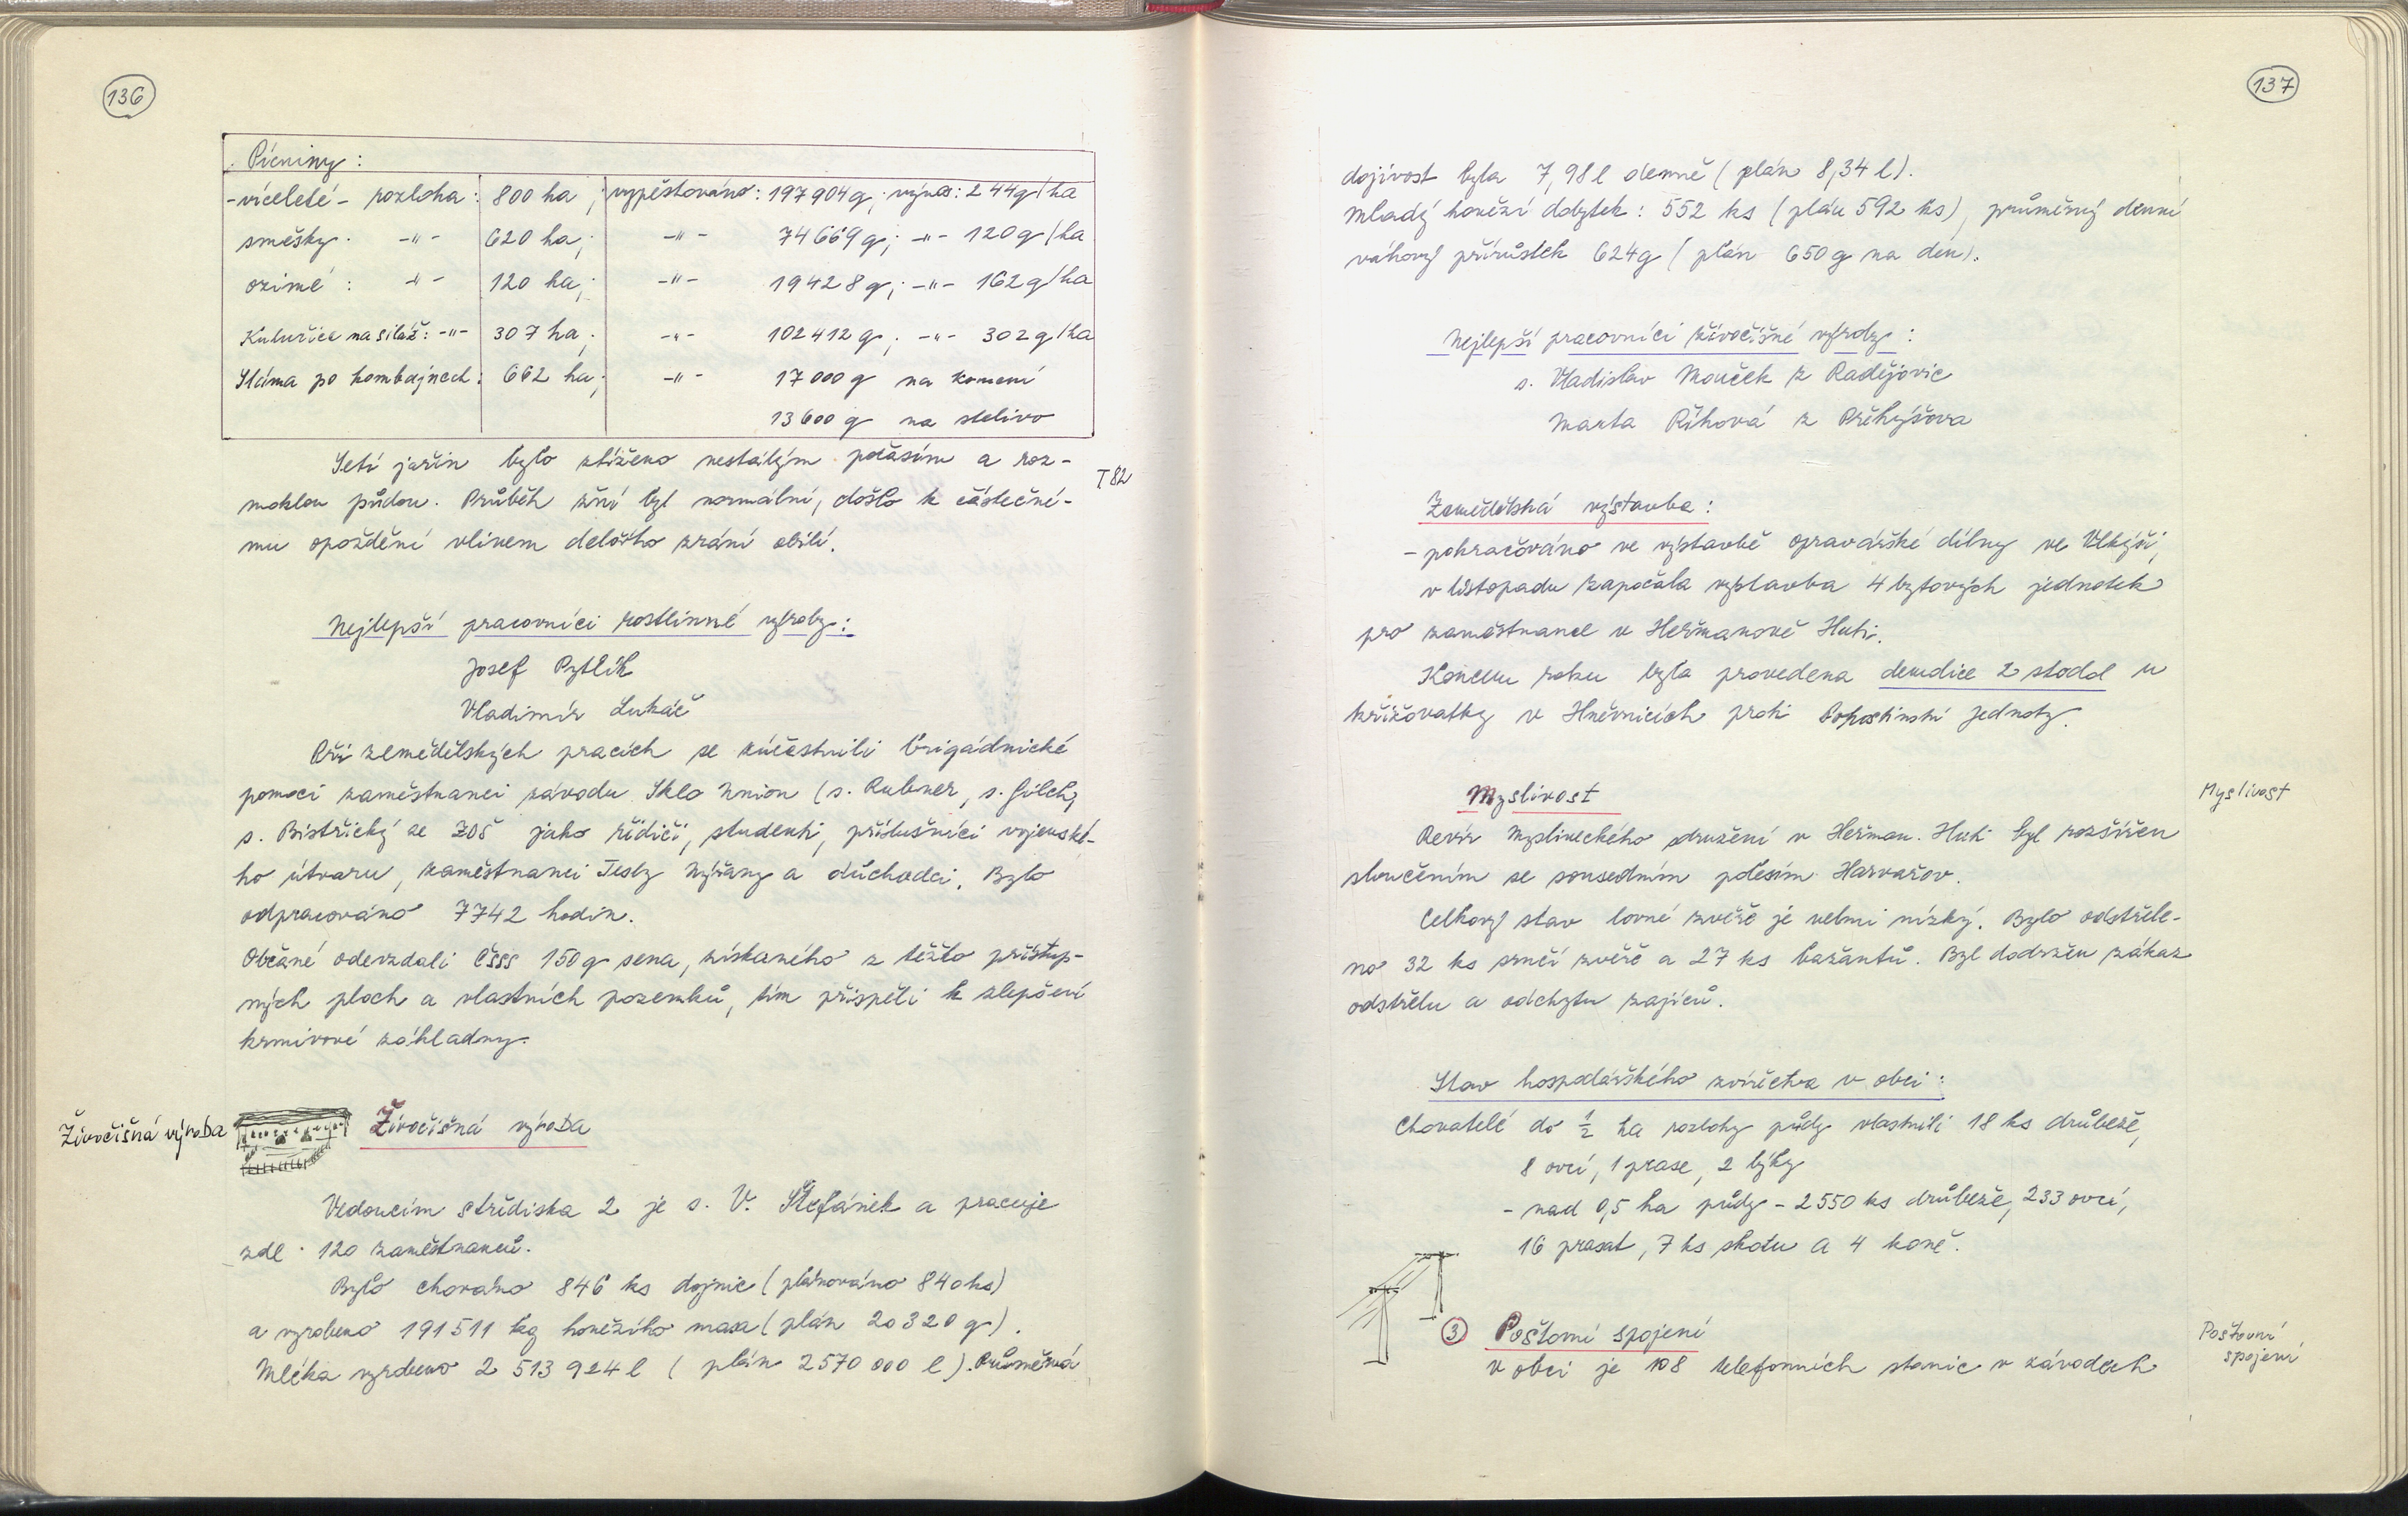 136
Pícniny:
- víceleté - rozloha: 800 ha; vypěstováno: 197 904 q; výnos: 244 q/ha
směsky. -"- 620 ha; -"- 74 669 q; -"- 120 q/ha
ozimé: -"- 120 ha; -"- 19 428 q; -"- 162 q/ha
Kukuřice na siláž: -"- 307 ha; -"- 102 412 q; -"- 302 q/ha
Sláma po kombajnech: 662 ha; -"- 17 000 q na krmení
13 600 q na stelivo
Setí jařin bylo ztíženo nestálým počasím a roz-
T 82
moklou půdou. Průběh žní byl normální, došlo k částečné-
mu opoždění vlivem delšího zrání obilí.
Nejlepší pracovníci rostlinné výroby:
Josef Pytlík
Vladimír Lukáč
Při zemědělských pracích se zúčastnili brigádnické
pomoci zaměstnanci závodu Sklo Union (s. Rubner, s. Gilch,
s. Bistřický ze ZDŠ jako řidiči, studenti, příslušníci vojenské-
ho útvaru, zaměstnanci Tesly Nýřany a důchodci. Bylo
odpracováno 7742 hodin.
Občané odevzdali ČSSS 150 q sena, získaného z těžko přístup-
ných ploch a vlastních pozemků, tím přispěli k zlepšení
krmivové základny.
Živočišná výroba
Živočišná výroba
Vedoucím střediska 2 je s. V. Štefánek a pracuje
zde 120 zaměstnanců.
Bylo chováno 846 ks dojnic (plánováno 840 ks)
a vyrobeno 191 511 kg hovězího masa (plán 20 320 q).
Mléka vyrobeno 2 513 924 l (plán 2 570 000 l). Průměrná
137
dojivost byla 7,98 l denně (plán 8,34 l).
Mladý hovězí dobytek: 552 ks (plán 592 ks), průměrný denní
váhový přírůstek 624 g (plán 650 g na den).
Nejlepší pracovníci živočišné výroby:
s. Vladislav Mouček z Radějovic
Marta Říhová z Přehýšova
Zemědělská výstavba:
- pokračováno ve výstavbě opravářské dílny ve Vlkýši,
v listopadu započala výstavba 4 bytových jednotek
pro zaměstnance v Heřmanově Huti.
Koncem roku byla provedena demolice 2 stodol u
křižovatky v Hněvnicích proti Pohostinství Jednoty.
Myslivost
Myslivost
Revír Mysliveckého sdružení v Heřman. Huti byl rozšířen
sloučením se sousedním polesím Harvařov.
Celkový stav lovné zvěře je velmi nízký. Bylo odstřele-
no 32 ks srnčí zvěře a 27 ks bažantů. Byl dodržen zákaz
odstřelu a odchytu zajíců.
Stav hospodářského zvířectva v obci:
Chovatelé do 1/2 ha rozlohy půdy vlastnili 18 ks drůbeže,
8 ovcí, 1 prase, 2 býky
- nad 0,5 ha půdy - 2 550 ks drůbeže, 233 ovcí,
16 prasat, 7 ks skotu a 4 koně.
3 Poštovní spojení
Poštovní
spojení
v obci je 108 telefonních stanic v závodech